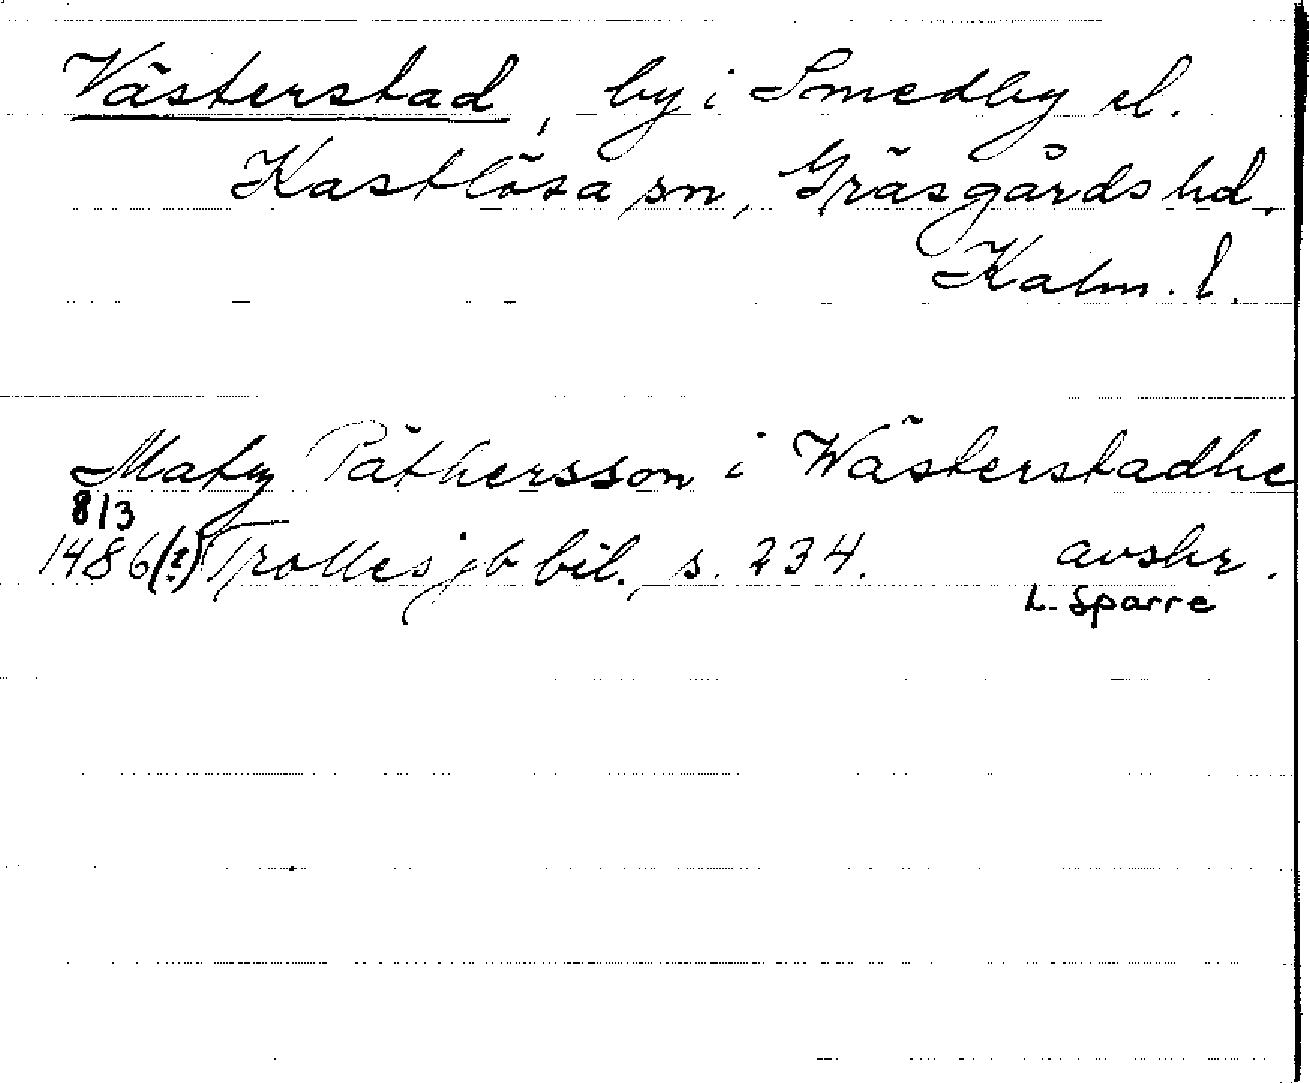 Västerstad, by i Smedby el.
Kastlösa sn, Gräsgårds hd.
Kalm. l.
Matz Päthersson i Wästerstadhe
8/3
1486(?) Trolles jb bil., s. 234. avskr.
L. Sparre